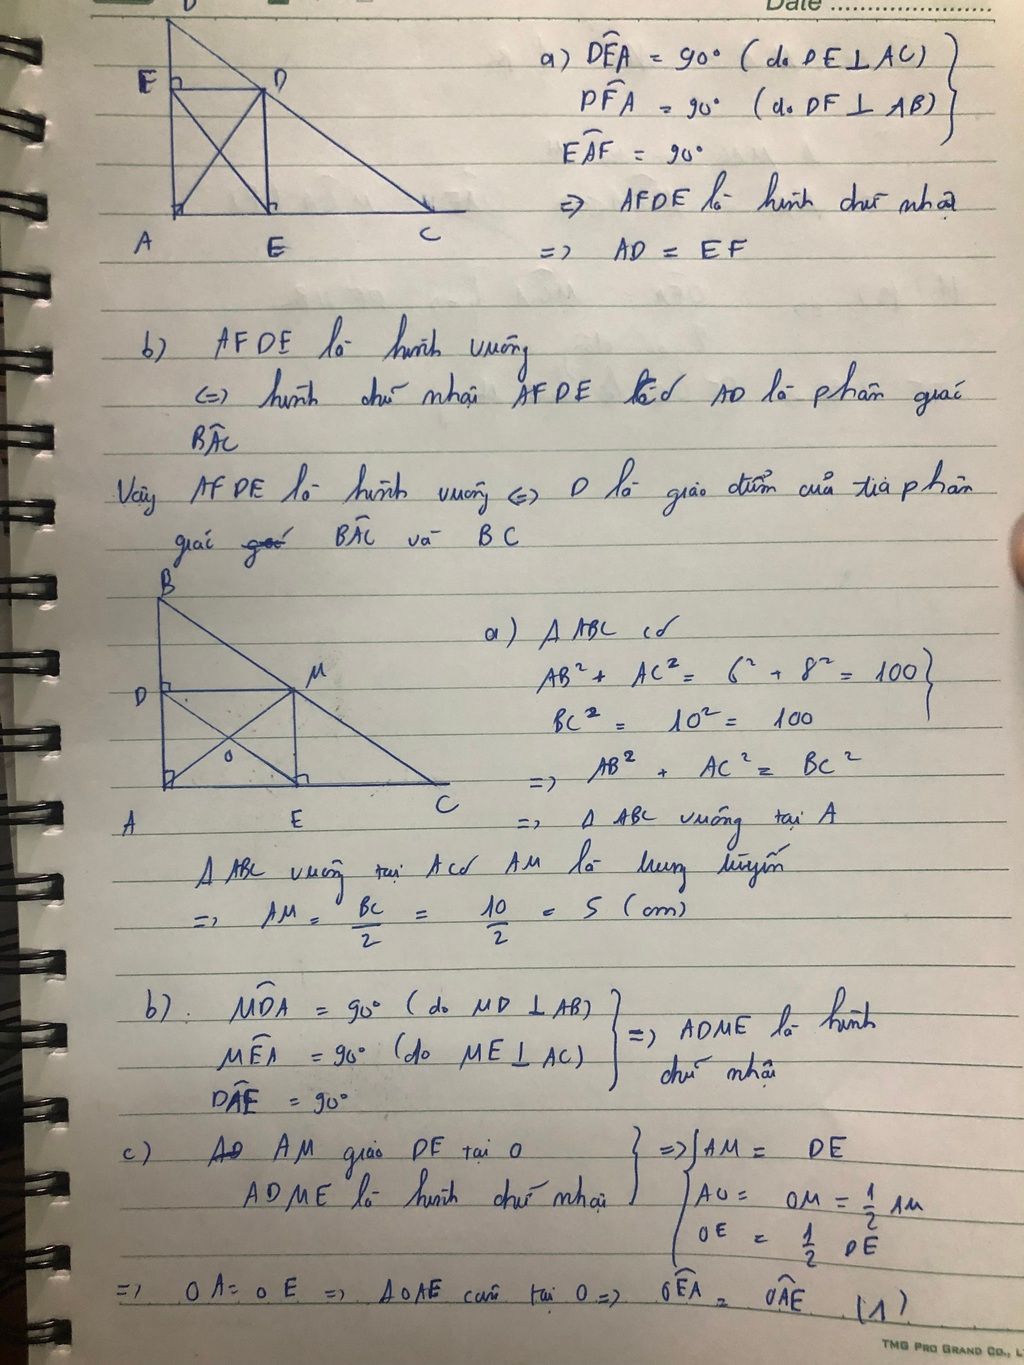 Date
E
D
A
E
C
a) DÊA = 90° (do DE ⊥ AC)
DF̂A = 90° (do DF ⊥ AB)
EÂF = 90°
=> AFDE là hình chữ nhật
=> AD = EF
b) AFDE là hình vuông
<=> hình chữ nhật AFDE có AD là phân giác
BÂC
Vậy AFDE là hình vuông <=> D là giao điểm của tia phân
giác BÂC và BC
B
D
M
O
A
E
C
a) Δ ABC có
AB² + AC² = 6² + 8² = 100
BC² = 10² = 100
=> AB² + AC² = BC²
=> Δ ABC vuông tại A
Δ ABC vuông tại A có AM là trung tuyến
=> AM = BC/2 = 10/2 = 5 (cm)
b). MD̂A = 90° (do MD ⊥ AB)
MÊA = 90° (do ME ⊥ AC)
DÂE = 90°
=> ADME là hình
chữ nhật
c) AM giao DE tại O
ADME là hình chữ nhật
=> AM = DE
AO = OM = 1/2 AM
OE = 1/2 DE
=> OA = OE => ΔOAE cân tại O => OÊA = OÂE (1)
TMG PRO GRAND CO., L